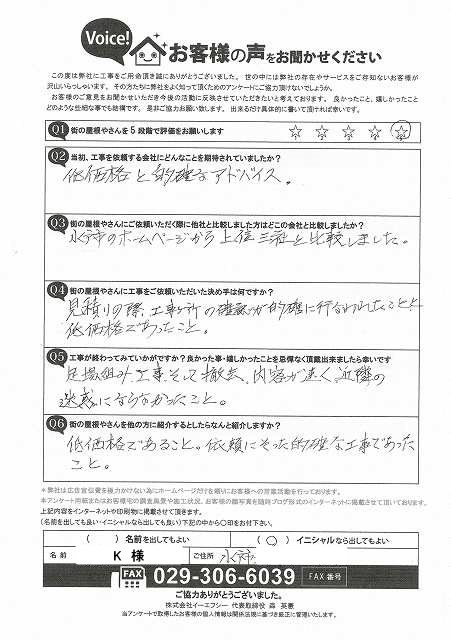 Voice!
お客様の声をお聞かせください
この度は弊社に工事をご用命頂き誠にありがとうございました。世の中には弊社の存在やサービスをご存知ないお客様が
沢山いらっしゃいます。その方たちに弊社をよく知って頂くためのアンケートにご協力頂けないでしょうか。
お客様のご意見をお聞かせいただき今後の活動に反映させていただきたいと考えております。良かったこと、嬉しかったこと
どのような些細な事でも結構です。是非ご協力お願い致します。出来るだけ具体的に書いて頂ければ幸いです。
Q1 街の屋根やさんを5段階で評価をお願いします ☆ ☆ ☆ ☆ ☆
Q2 当初、工事を依頼する会社にどんなことを期待されていましたか?
低価格と的確なアドバイス。
Q3 街の屋根やさんにご依頼いただく際に他社と比較しました方はどこの会社と比較しましたか?
水戸市のホームページから上位三社と比較しました。
Q4 街の屋根やさんに工事をご依頼いただいた決め手は何ですか?
見積りの際、工事ヶ所の確認が的確に行なわれたことと
低価格であったこと。
Q5 工事が終わってみていかがですか?良かった事・嬉しかったことを忌憚なく頂戴出来ましたら幸いです
足場組み、工事そして撤去、内容が速く、近隣の
迷惑にならなかったこと。
Q6 街の屋根やさんを他の方に紹介するとしたらなんと紹介しますか?
低価格であること。依頼にそった的確な工事であった
こと。
*弊社は広告宣伝費を極力かけない為にホームページだけを頼りにお客様への営業活動を行っております。
本アンケート用紙またはお客様宅の調査風景や施工状況、お客様の顔写真を随時ブログ形式のインターネットに掲載させて頂いております。
上記内容をインターネットや印刷物に掲載させて頂きます。
(名前を出しても良い・イニシャルなら出しても可)下記の中から○印をお付下さい。
( )名前を出してもよい (○)イニシャルなら出してもよい
名前 K 様 ご住所 水戸市
FAX 029-306-6039 FAX番号
ご協力ありがとうございました。
株式会社イーエフシー 代表取締役 森 英憲
当アンケートで取得したお客様の個人情報は関係法規に基づき厳正に管理いたします。